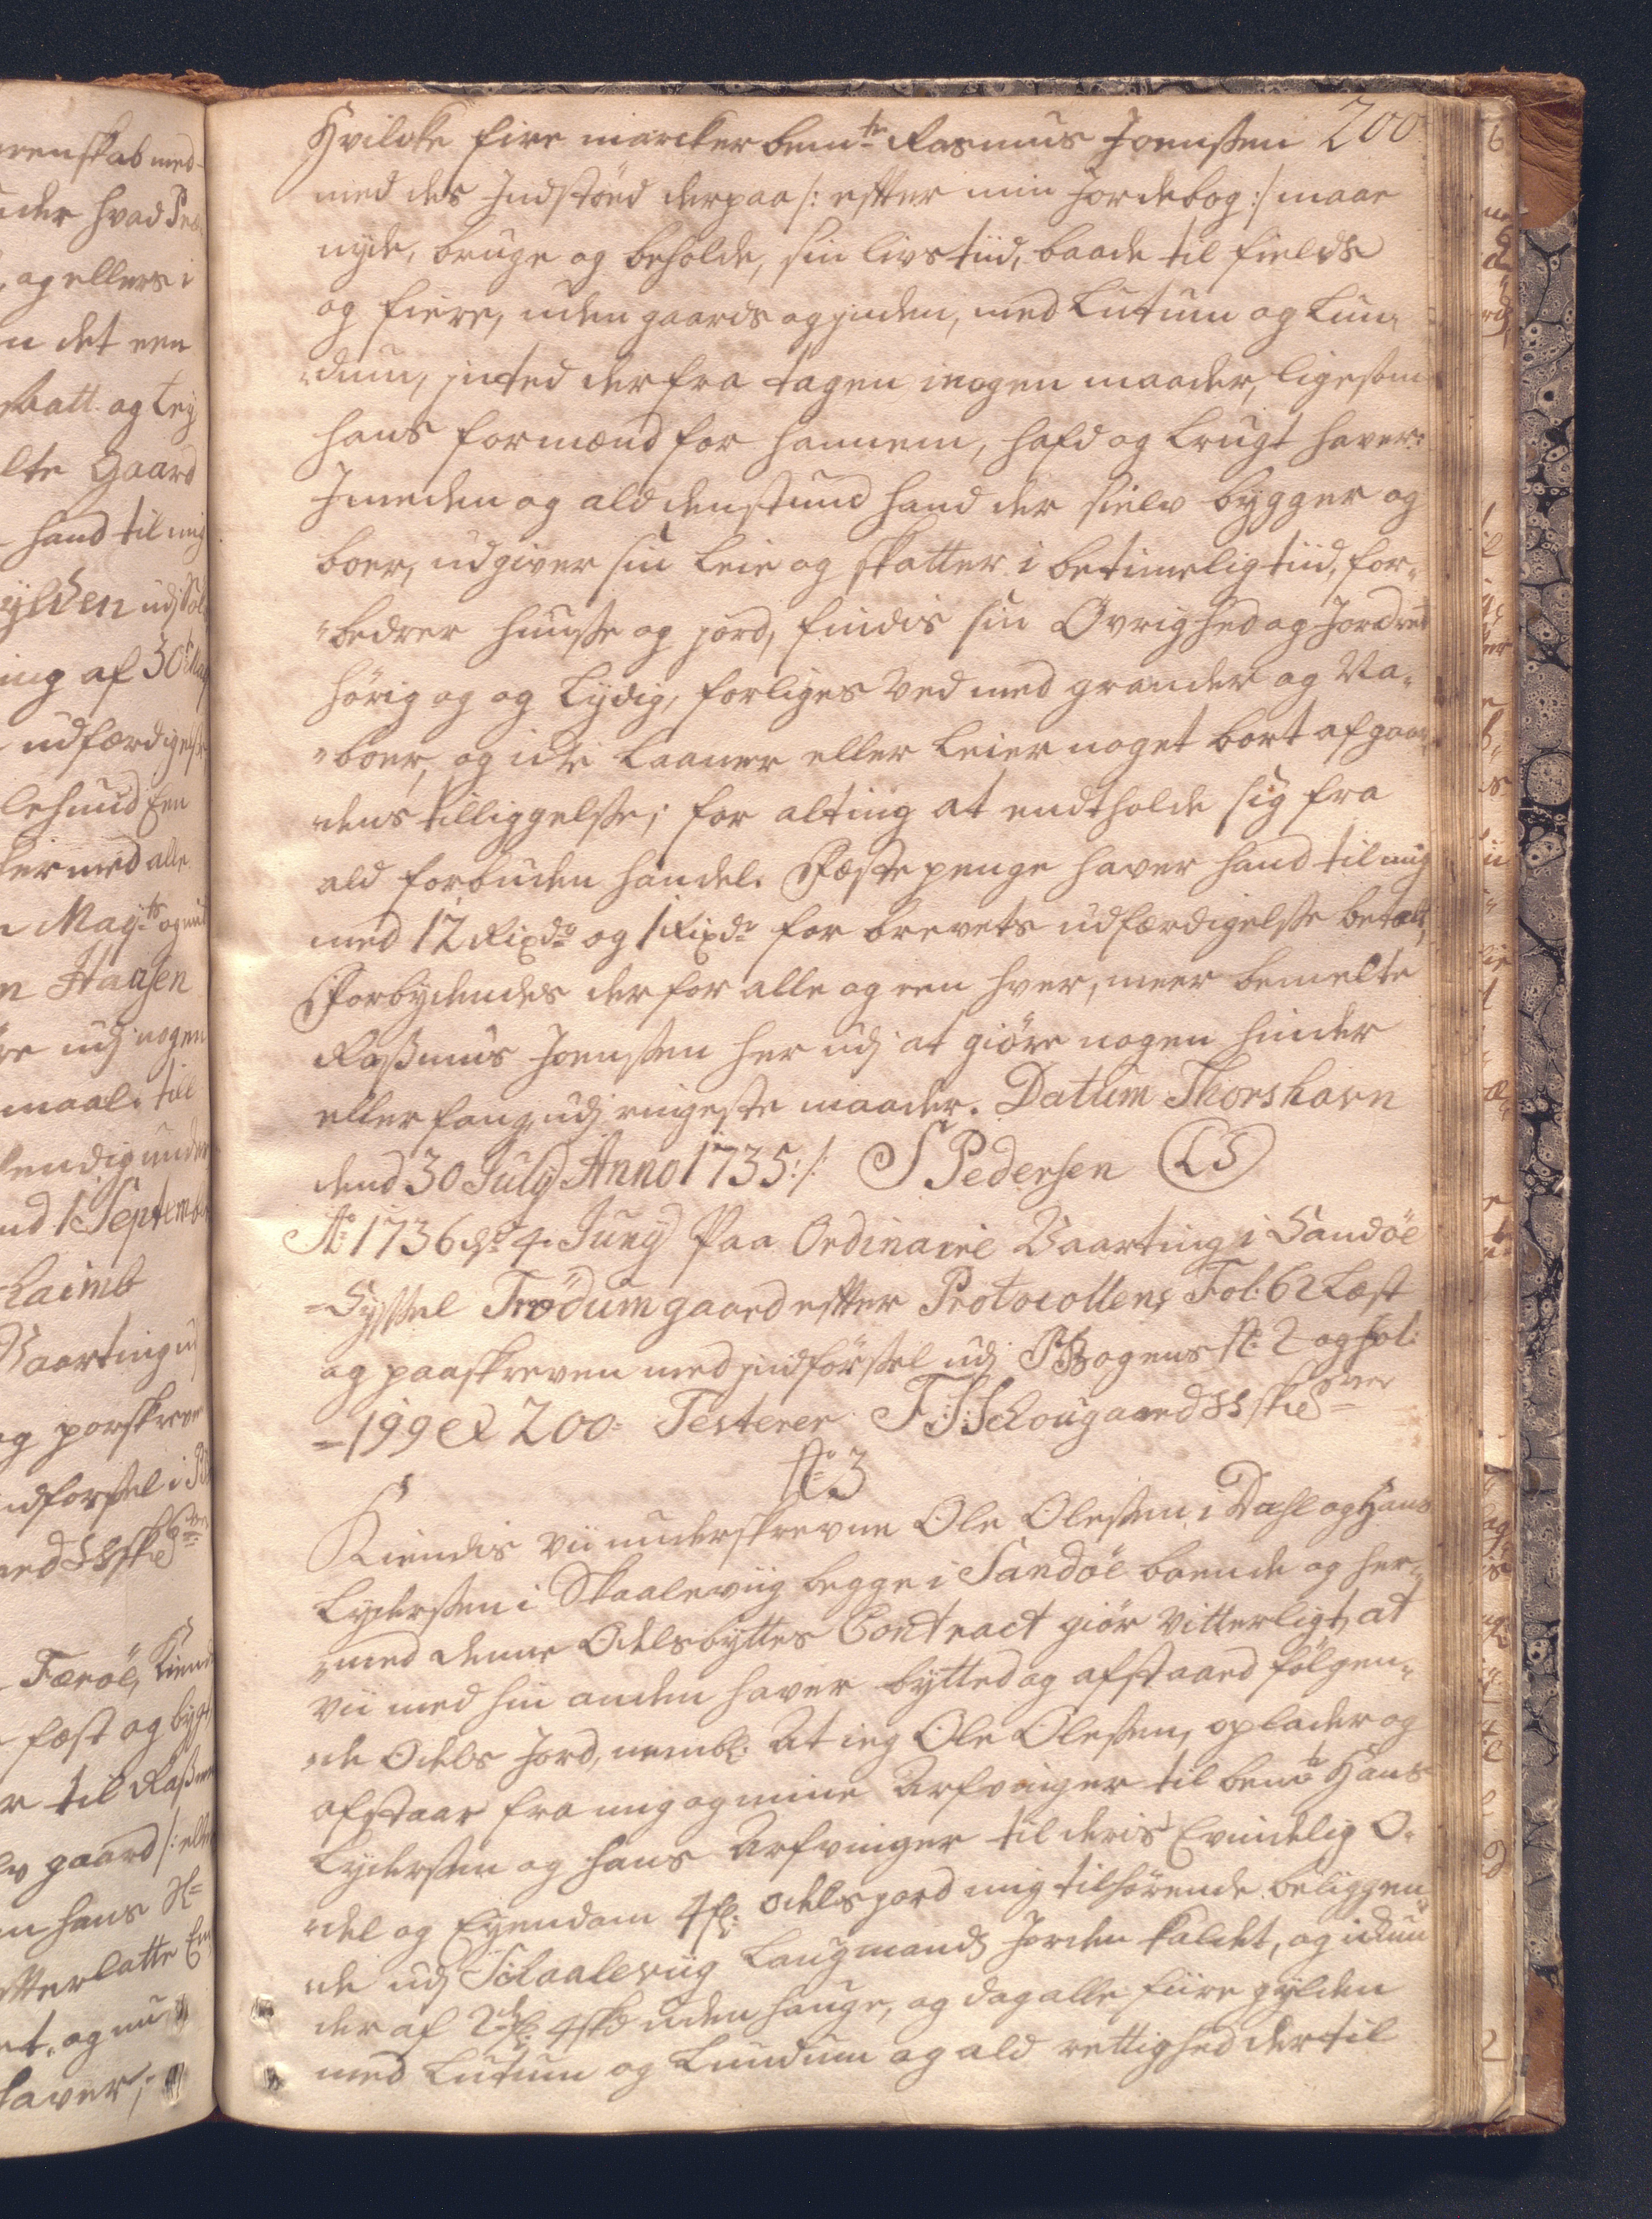 200
Hvilcke fire marcker bem:te Rasmus Joenssen
med des Indstöed derpaa /: efter min Jordebog :/ maae
nyde, bruge og beholde, sin livs tiid, baade til fields
og fiere, uden gaards og inden, med Lutum og Lun„
„dum, inted derfra tagen i nogen maader, ligesom
hans formænd for hannem, hafd og brugt haver:
Imeden og ald denstund hand der sielv bygger og
boer, udgiver sin leie og skatter i betimelig tiid, for„
„bedrer huusse og jord, findis sin Övrighed og Jordrot
hörig og og Lydig, forliges ved med grander og Na„
„boer, og icke laaner eller leier noget bort af gaar„
„dens tilliggelsse; for alting at endtholde sig fra
ald forbuden handel. Fæste penge haver hand til mig
med 12 Rixdr og 1 Rixdr for brevets udfærdigelsse betalt,
Forbydendes derfor alle og een hver, meer bemelte
Rassmus Joenssen her udj at giöre nogen hinder
eller fang udj ringeste maader. Datum Thorshavn
dend 30 July Anno 1735:/: S Pedersen LS
Ao 1736 d: 4. Juny Paa Ordinaire Vaarting i Sandöe
=Syssel Trödum gaard efter Protocollens Fol: 62 Læst
og paaskreven med indförssel udj PBogens No 2 og fol:
=199 et 200= Testerer F:S:Schougaard SS skrver
No 3
Kiendis vii underskrevne Ole Olessen i Dahl og Hans
Lyderssen i Skaaleviig begge i Sandöe boende og her„
„med denne Odelsbyttes Contract giör vitterligt, at
vii med hin anden haver bytted og afstaaed fölgen„
„de Odels Jord, nembl: At ieg Ole Olessen, oplader og
afstaar fra mig og mine Arfvinger til bemte Hans
Lyderssen og hans Arfvinger til deris Evindelig O„
„del og Eyendom 4 g: odels jord mig tilhörende beliggen„
„de udj Schaaleviig Laugmands Jorden kaldet, og
der af 2 g: 4 sk uden hauge, og dog alle fiire gylden
med Lutum og Lundum og ald rettighed dertil